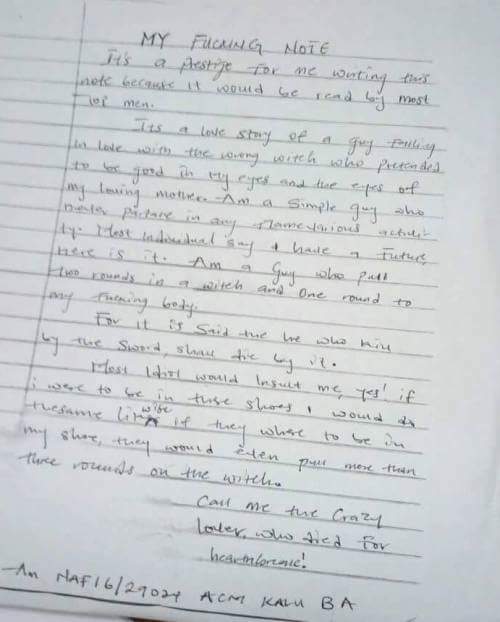 MY FUCKING NOTE
It's a prestige for me writing this
note because it would be read by most
of men.
Its a love story of a guy falling
in love with the wrong witch who pretended
to be good in my eyes and the eyes of
my loving mother. Am a simple guy who
never partare in any flamevarious activi-
ty. Most individual say I have a future,
Here is it. Am a guy who pull
two rounds in a witch and one round to
my fucking body.
For it is said the he who kill
by the sword, shall die by it.
Most Idiot would Insult me, yes! if
i were to be in there shoes I would do
thesame likewise if they where to be in
my shoe, they would even pull more than
three rounds on the witch.
Call me the crazy
lover, who died for
heartbreak!
Am NAF16/29024 ACM KALU BA